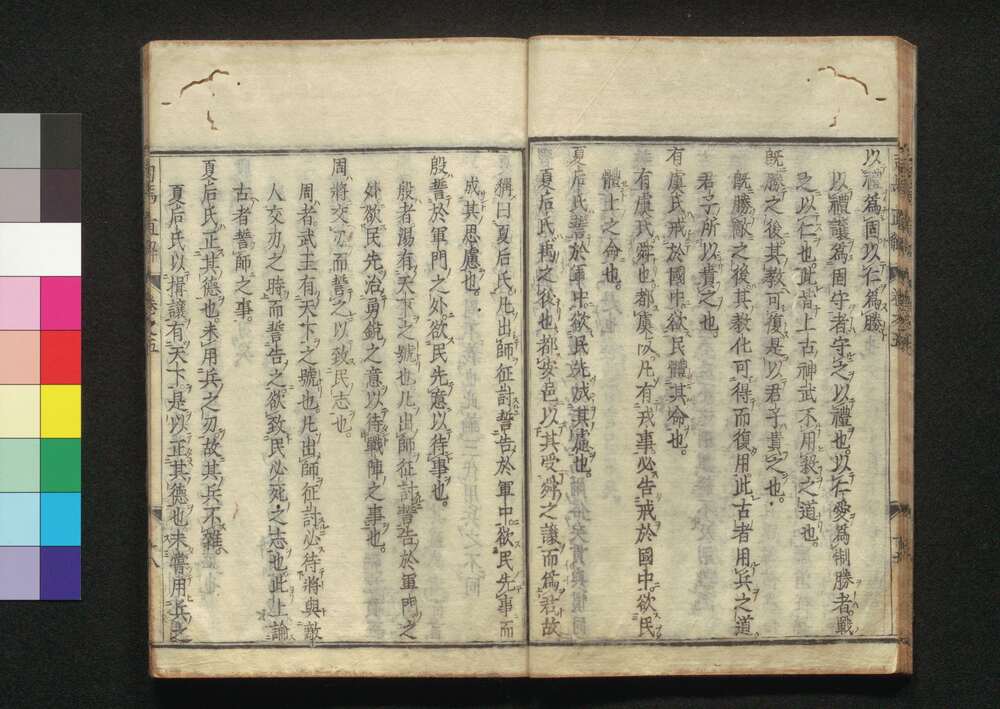 以禮為固以仁為勝
以禮讓為固守者守之以禮也以仁愛為制勝者戰
之以仁也此葢上古神武不用殺之道也
既勝之後其教可復是以君子貴之也
既勝敵之後其教化可得而復用此古者用兵之道
君子所以貴之也
有虞氏戒於國中欲民體其命也
有虞氏舜也都虞以凡有戒事必告戒於國中欲民
體上之命也
夏后氏誓於軍中欲民先成其慮也
夏后氏禹之後也都安邑以其受舜之讓而為君故
稱曰夏后氏凡出師征討誓告於軍中欲民先事而
成其思慮也
殷誓於軍門之外欲民先意以待事也
殷者湯有天下之號也凡出師征討誓告於軍門之
外欲民先治勇銳之意以待戰陣之事也
周將交刃而誓之以致民志也
周者武王有天下之號也凡出師征討必待將與敵
人交刃之時而誓告之欲致民必死之志也此上論
古者誓師之事
夏后氏正其德也未用兵之刃故其兵不雜
夏后氏以揖讓有天下是以正其德也未嘗用兵之